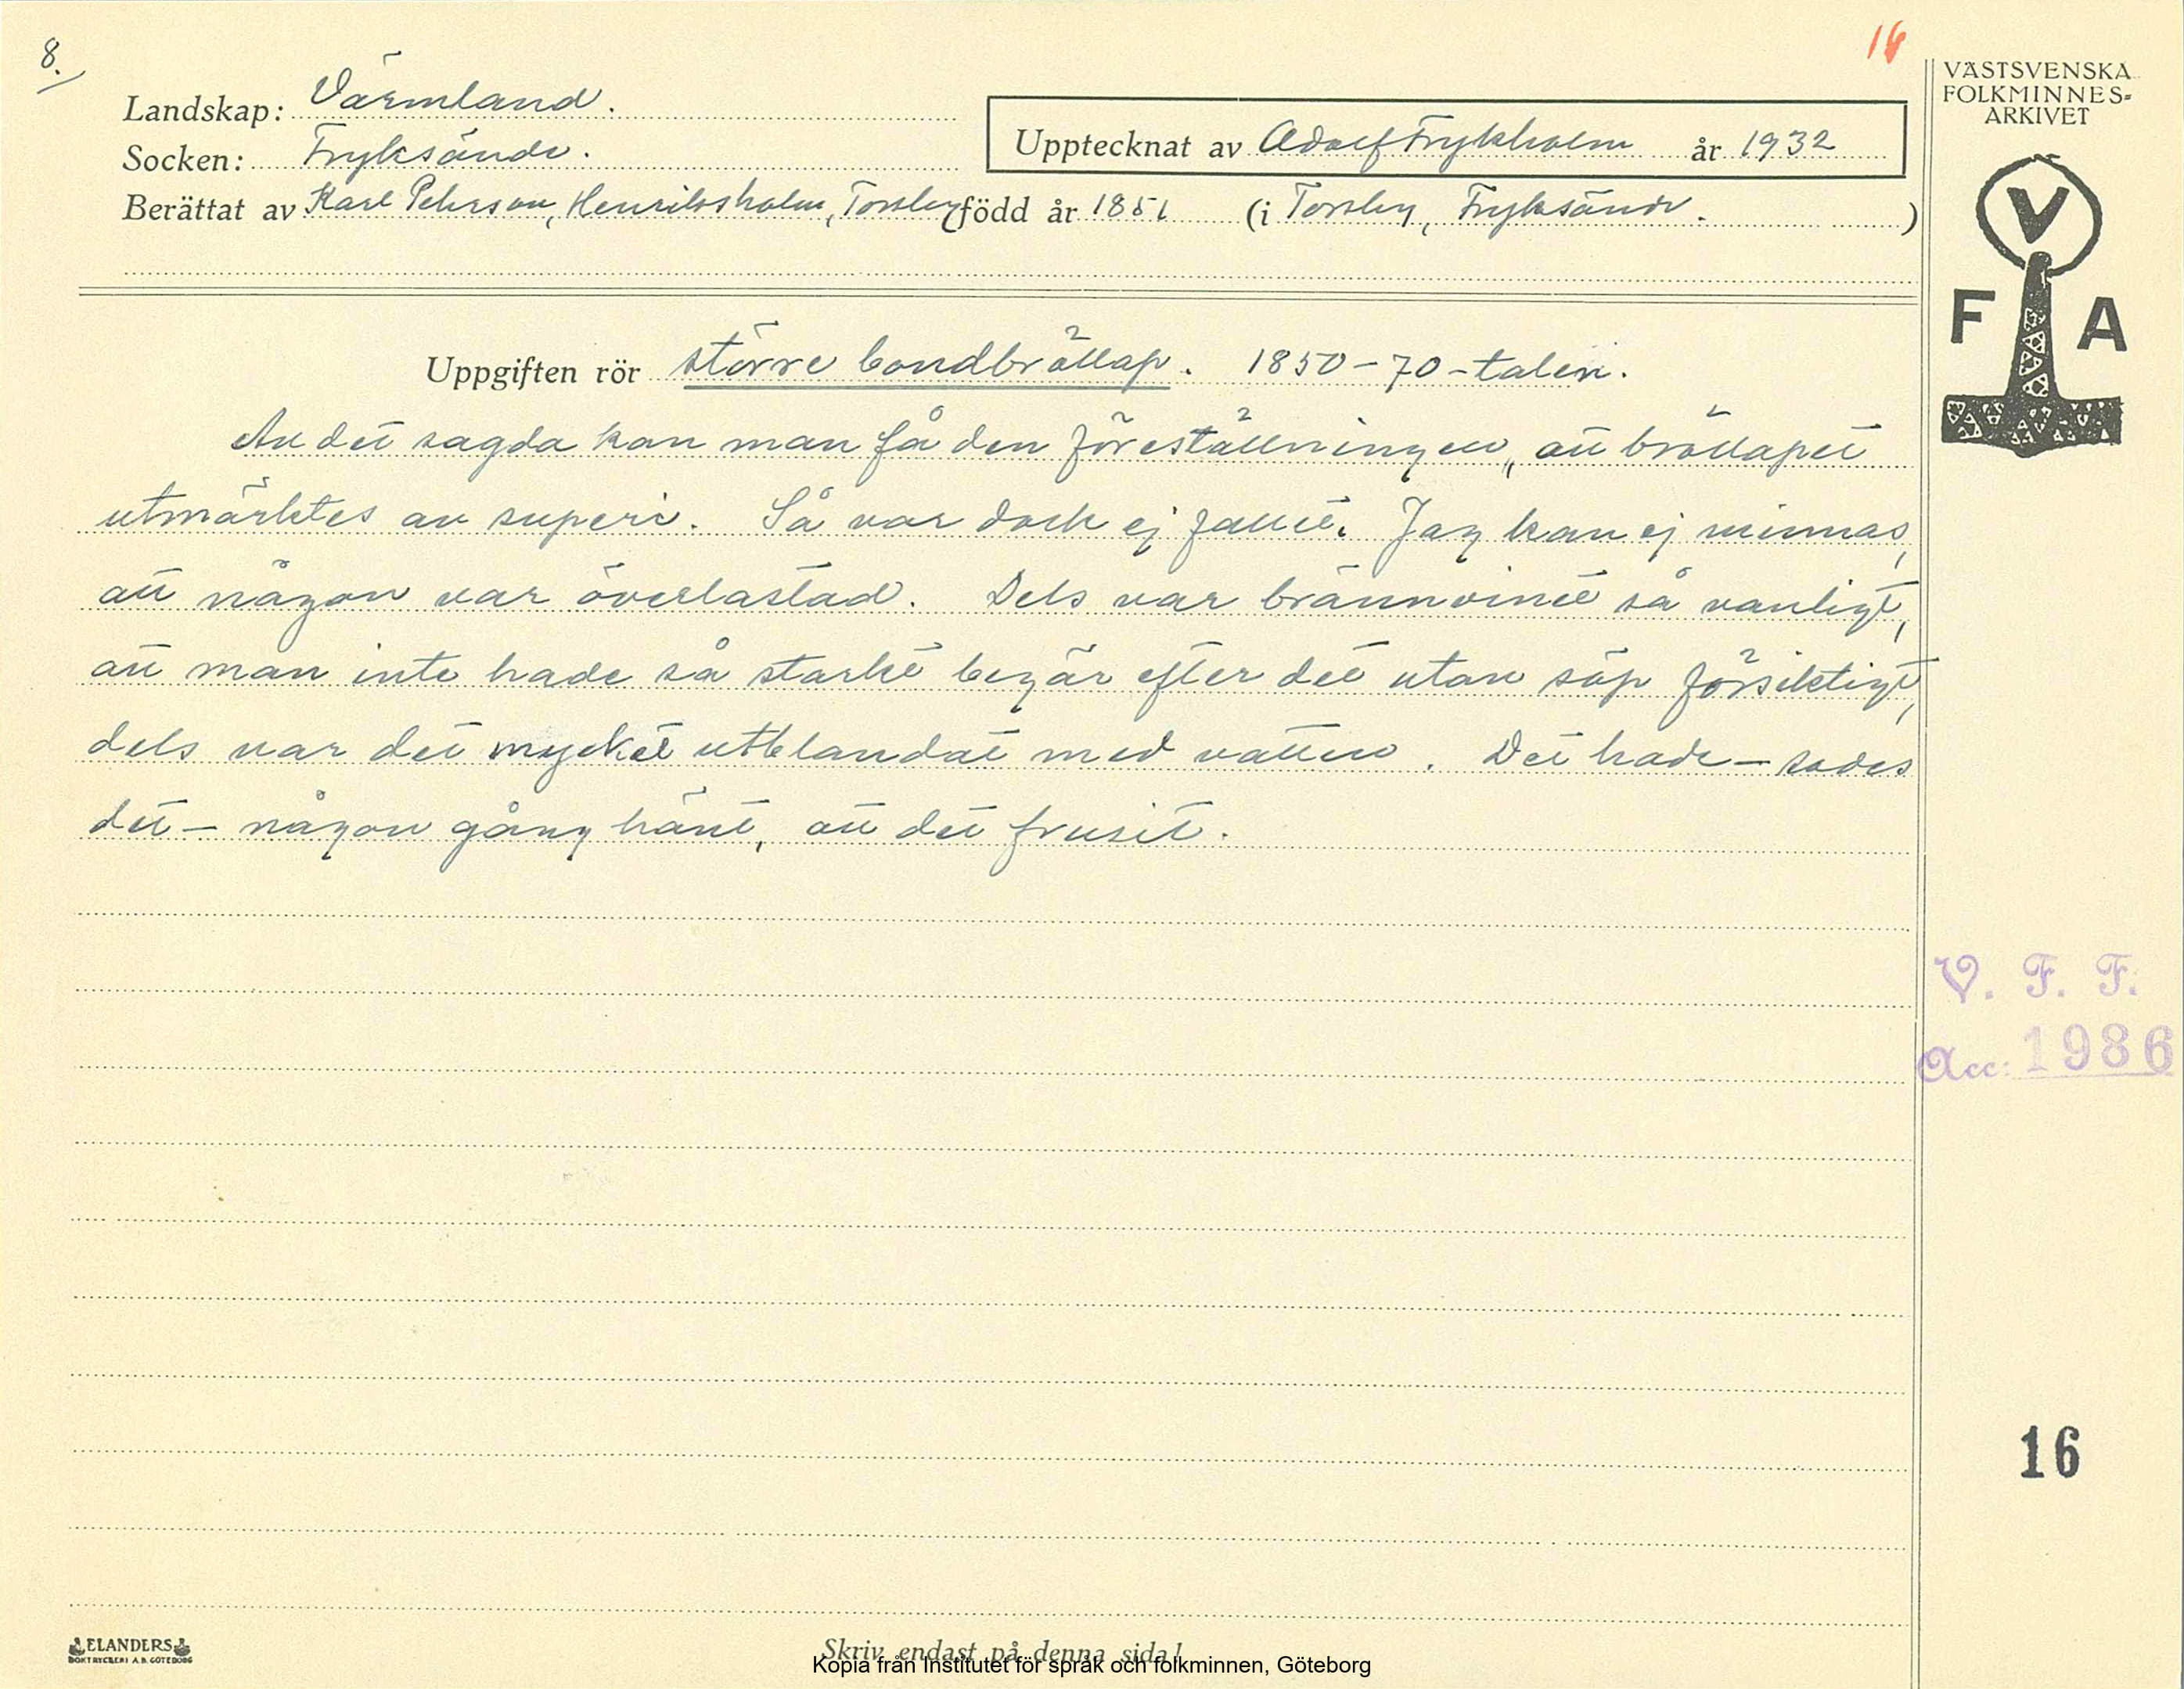 8.
16
VÄSTSVENSKA
FOLKMINNES=
ARKIVET
Landskap: Värmland.
Upptecknat av Adolf Frykholm år 1932
Socken: Fryksände.
Berättat av Karl Pehrson, Henriksholm, Torsby född år 1851 (i Torsby, Fryksände.)
V
F A
Uppgiften rör större bondbröllop. 1850-70-talen.
Av det sagda kan man få den föreställningen, att bröllopet
utmärktes av superi. Så var dock ej fallet. Jag kan ej minnas,
att någon var överlastad. Dels var brännvinet så vanligt,
att man inte hade så starkt begär efter det utan söp försiktigt,
dels var det mycket utblandat med vatten. Det hade – sades
det – någon gång hänt, att det frusit.
V. F. F.
Acc: 1986
16
ELANDERS
BOKTRYCKERI A.B. GÖTEBORG
Skriv endast på denna sida!
Kopia från Institutet för språk och folkminnen, Göteborg